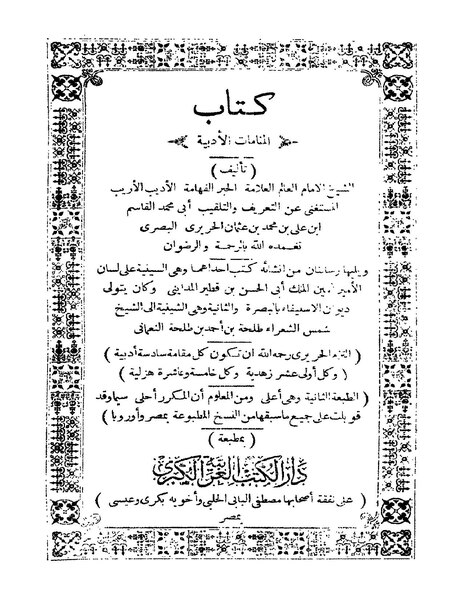 كتاب
المقامات الأدبية
(تأليف)
الشيخ الامام العالم العلامة الحبر الفهامة الأديب الأريب
المستغنى عن التعريف والتلقيب أبى محمد القاسم
ابن على بن محمد بن عثمان الحريرى البصرى
تغمده الله بالرحمة والرضوان
ويليها رسالتان من انشائه كتب احداهما وهى السينية على لسان
الأمير أمين الملك أبى الحسن بن فطير المداينى وكان يتولى
ديوان الاستيفاء بالبصرة والثانية وهى الشينية الى الشيخ
شمس الشعراء طلحة بن أحمد بن طلحة النعمانى
(التزم الحريرى رحمه الله ان تكون كل مقامة سادسة أدبية)
(وكل أولى عشر زهدية وكل خامسة وعاشرة هزلية)
(الطبعة الثانية وهى أعلى ومن المعلوم أن المكرر أحلى سيما وقد
قوبلت على جميع ما سبقها من النسخ المطبوعة بمصر وأوروبا)
(بمطبعة)
دار الكتب العربية الكبرى
(على نفقة أصحابها مصطفى البابى الحلبى وأخويه بكرى وعيسى)
بمصر